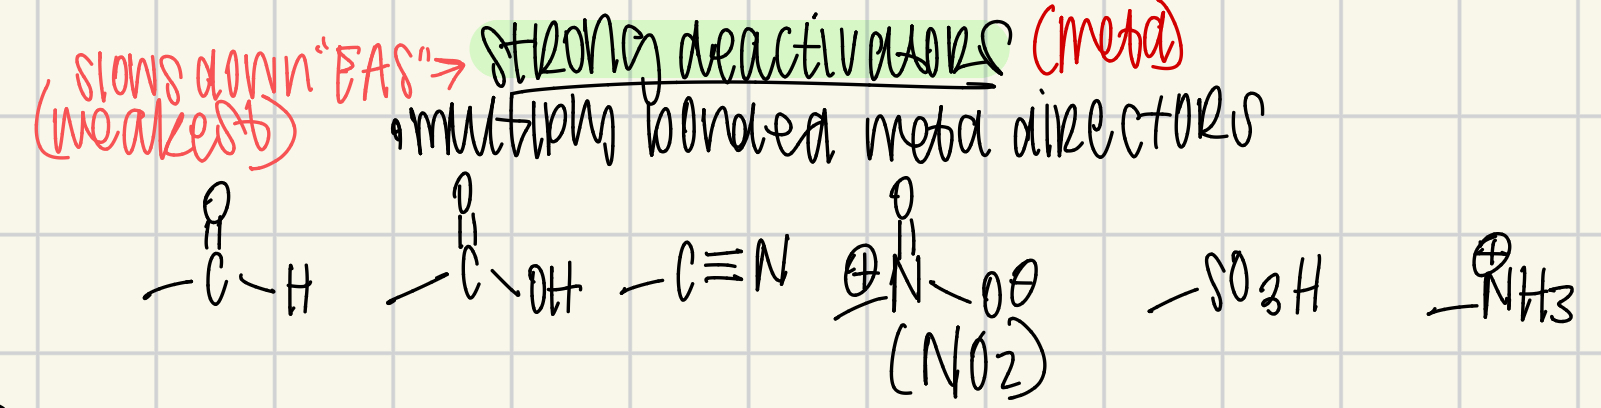 slows down "EAS" → strong deactivators (meta)
(weakest) • multiply bonded meta directors
O O O
C H C OH C≡N ⊕N O⊖ SO3H ⊕NH3
(NO2)